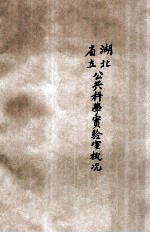 湖北
省立
公共科學實驗室概況